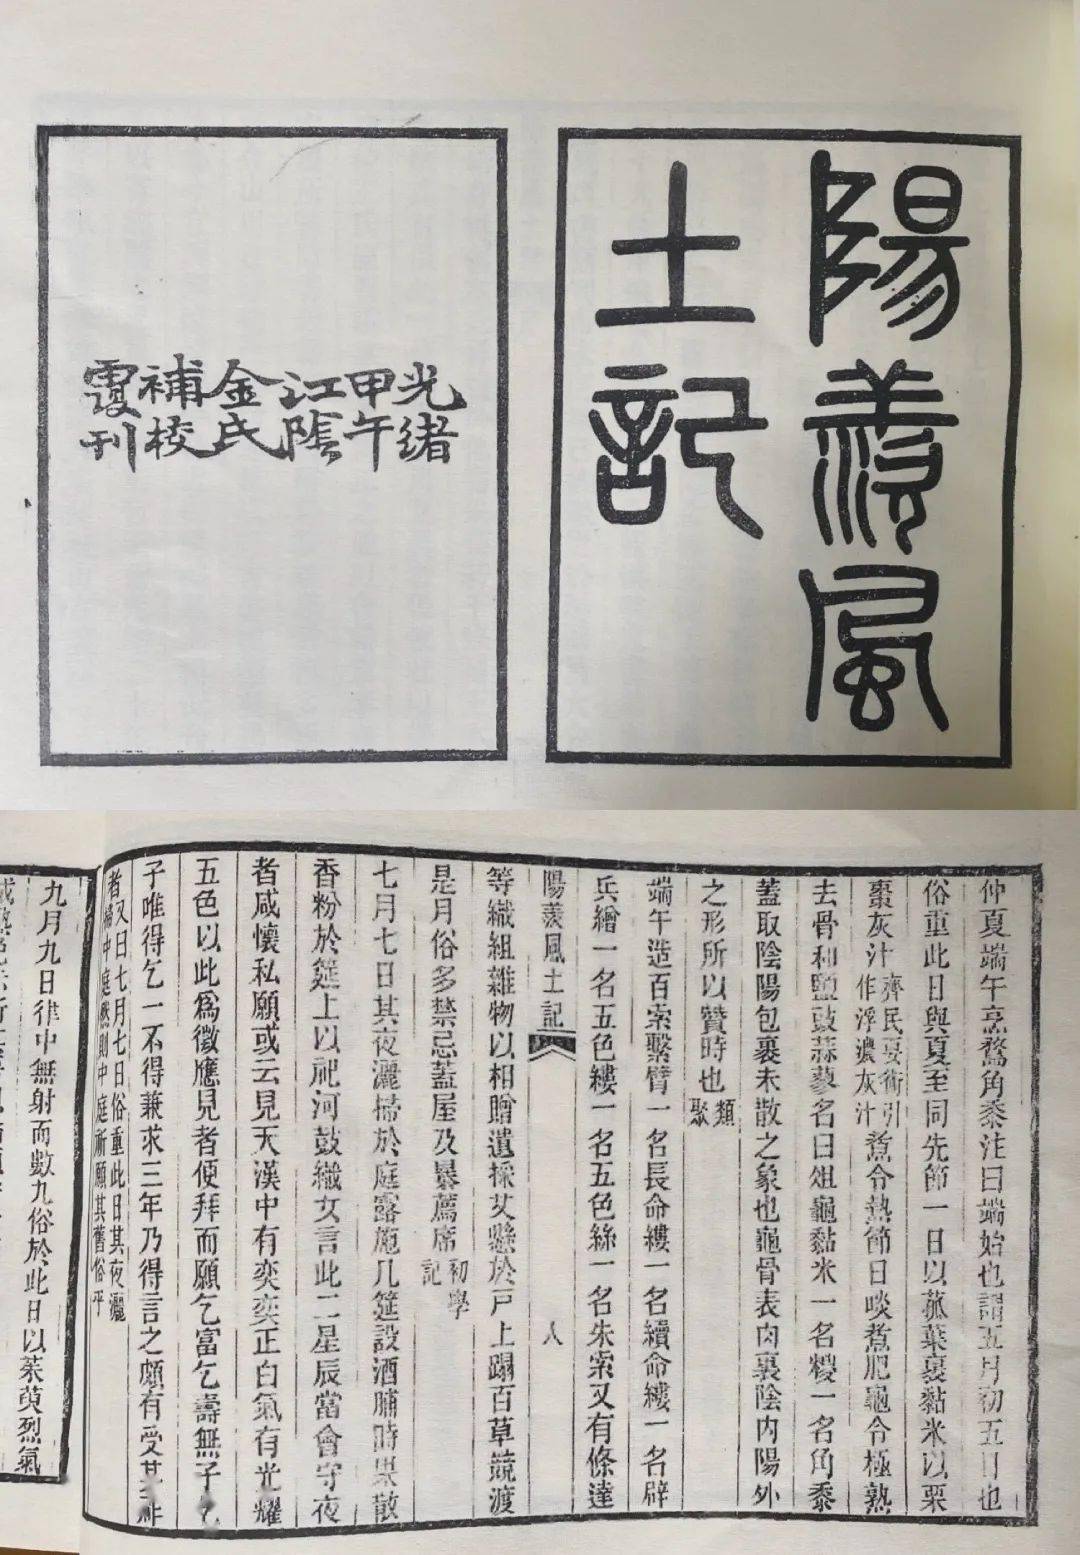 陽羨風
土記
光緒
甲午
江隂
金氏
補校
覆刊
仲夏端午烹鶩角黍注曰端始也謂五月初五日也
俗重此日與夏至同先節一日以菰葉裹黏米以栗
棗灰汁齊民要術引作浮濃灰汁煮令熟節日啖煮肥龜令極熟
去骨和鹽豉蒜蓼名曰俎龜黏米一名糉一名角黍
蓋取陰陽包裹未散之象也龜骨表肉裏陰內陽外
之形所以贊時也類聚
端午造百索繫臂一名長命縷一名續命縷一名辟
兵繒一名五色縷一名五色絲一名朱索又有條達
陽羨風土記 八
等織組雜物以相贈遺採艾懸於戶上蹋百草競渡
是月俗多禁忌蓋屋及暴薦席初學記
七月七日其夜灑掃於庭露施几筵設酒脯時果散
香粉於筵上以祀河鼓織女言此二星辰當會守夜
者咸懷私願或云見天漢中有奕奕正白氣有光耀
五色以此爲徵應見者便拜而願乞富乞壽無子乞
子唯得乞一不得兼求三年乃得言之頗有受其祚
者又曰七月七日俗重此日其夜灑掃中庭然則中庭祈願其舊俗乎
九月九日律中無射而數九俗於此日以茱萸烈氣